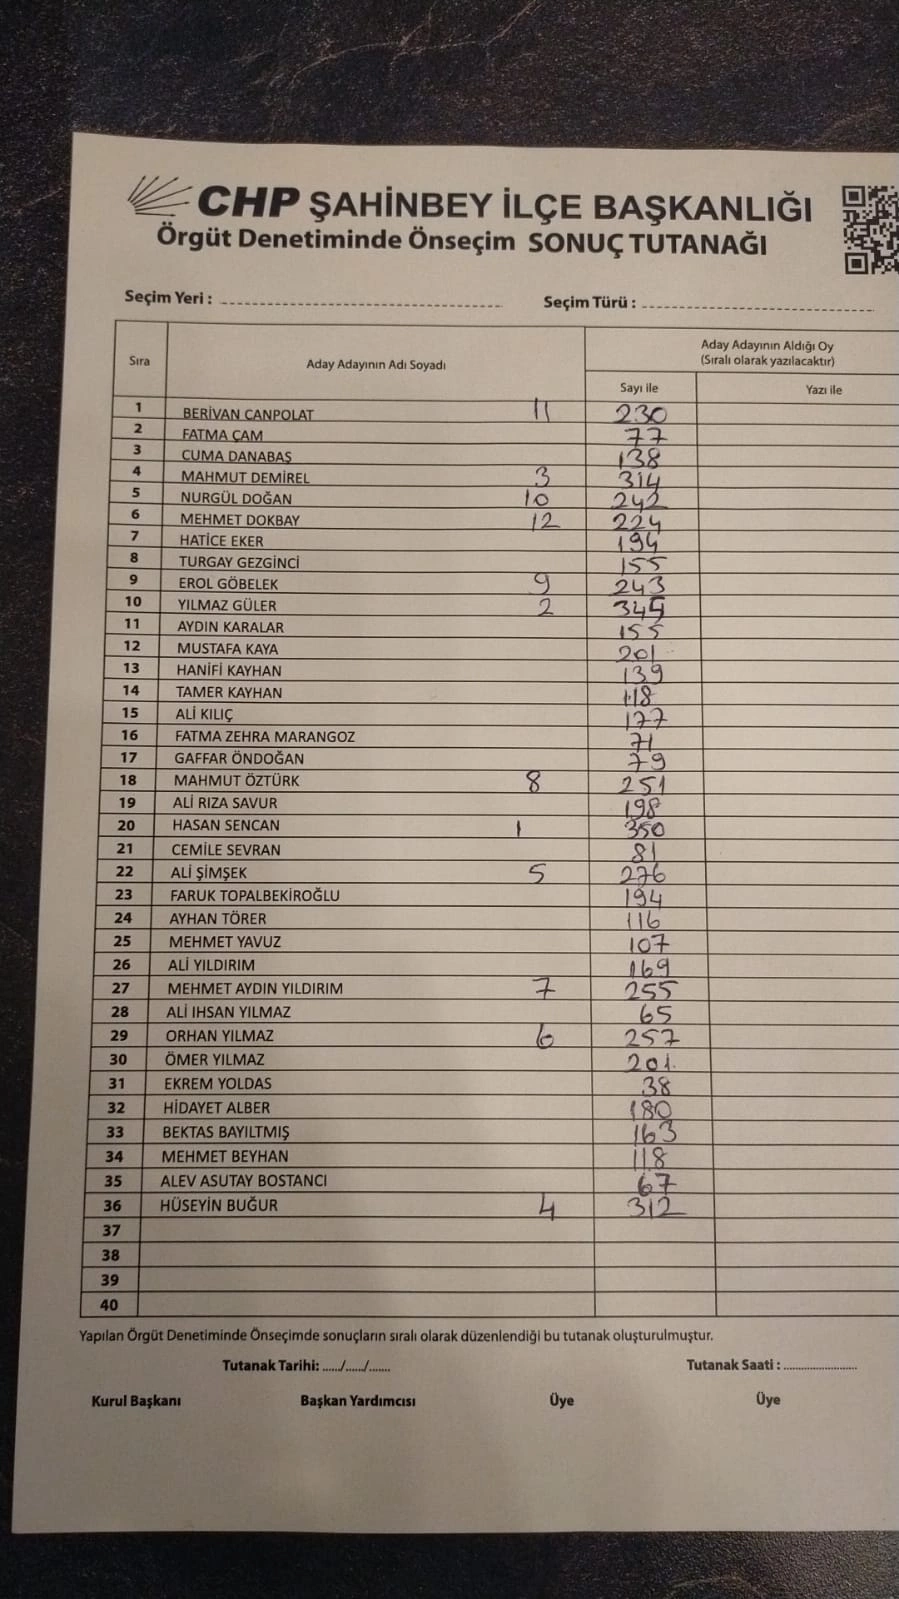 CHP ŞAHİNBEY İLÇE BAŞKANLIĞI
Örgüt Denetiminde Önseçim SONUÇ TUTANAĞI
Seçim Yeri : Seçim Türü :
Sıra Aday Adayının Adı Soyadı Aday Adayının Aldığı Oy
(Sıralı olarak yazılacaktır)
Sayı ile Yazı ile
1 BERİVAN CANPOLAT 11 230
2 FATMA ÇAM 77
3 CUMA DANABAŞ 138
4 MAHMUT DEMİREL 3 314
5 NURGÜL DOĞAN 10 242
6 MEHMET DOKBAY 12 224
7 HATİCE EKER 194
8 TURGAY GEZGİNCİ 155
9 EROL GÖBELEK 9 243
10 YILMAZ GÜLER 2
11 AYDIN KARALAR 155
12 MUSTAFA KAYA 201
13 HANİFİ KAYHAN 139
14 TAMER KAYHAN 118
15 ALİ KILIÇ 177
16 FATMA ZEHRA MARANGOZ 71
17 GAFFAR ÖNDOĞAN 79
18 MAHMUT ÖZTÜRK 8 251
19 ALİ RIZA SAVUR 198
20 HASAN SENCAN 1 350
21 CEMİLE SEVRAN 81
22 ALİ ŞİMŞEK 5 276
23 FARUK TOPALBEKİROĞLU 194
24 AYHAN TÖRER 116
25 MEHMET YAVUZ 107
26 ALİ YILDIRIM 169
27 MEHMET AYDIN YILDIRIM 7 255
28 ALİ IHSAN YILMAZ 65
29 ORHAN YILMAZ 6 257
30 ÖMER YILMAZ 201
31 EKREM YOLDAS 38
32 HİDAYET ALBER 180
33 BEKTAS BAYILTMIŞ 163
34 MEHMET BEYHAN 118
35 ALEV ASUTAY BOSTANCI 67
36 HÜSEYİN BUĞUR 4 312
37
38
39
40
Yapılan Örgüt Denetiminde Önseçimde sonuçların sıralı olarak düzenlendiği bu tutanak oluşturulmuştur.
Tutanak Tarihi: ....../....../....... Tutanak Saati : ........................
Kurul Başkanı Başkan Yardımcısı Üye Üye